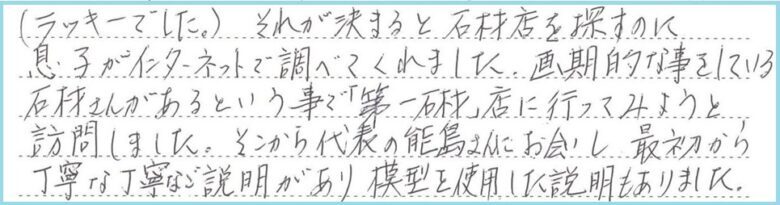 (ラッキーでした。) それが決まると石材店を探すのに
息子がインターネットで調べてくれました。画期的な事をしている
石材さんがあるという事で「第一石材」店に行ってみようと
訪問しました。そこから代表の能島さんにお会いし 最初から
丁寧な丁寧なご説明があり 模型を使用した説明もありました。